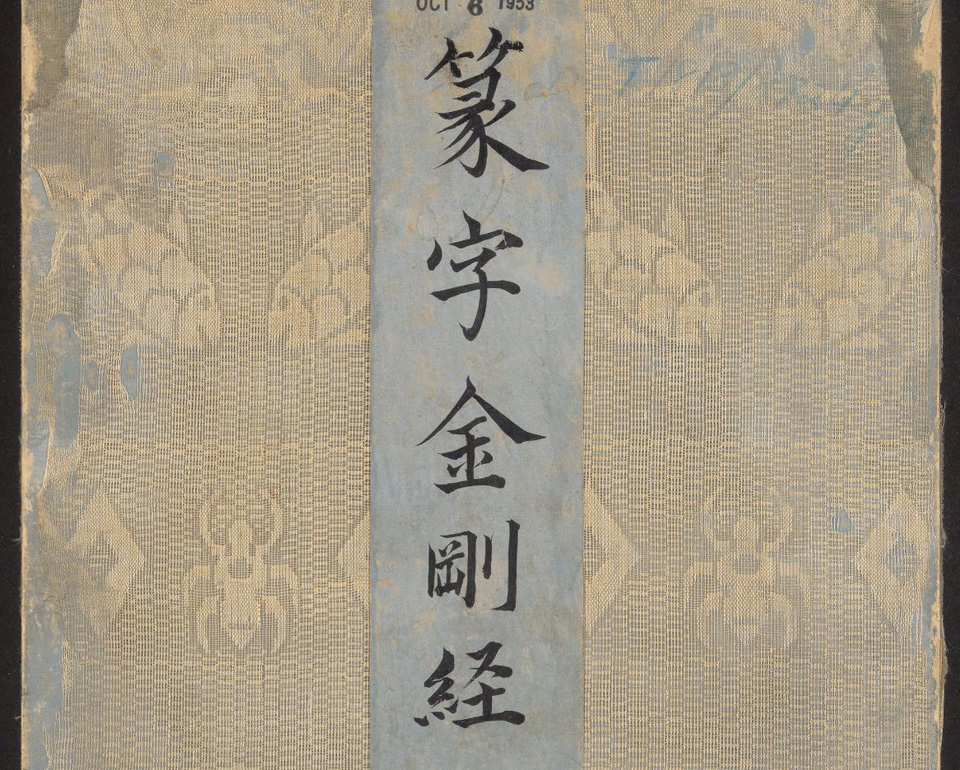 OCT 6 1953
篆字金剛経